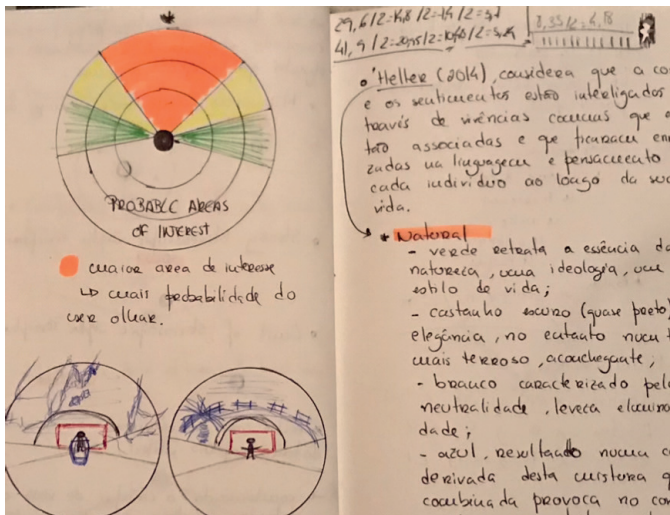 PROBABLE AREAS
OF INTEREST
maior area de interesse
↳ mais probabilidade do
user olhar.
41,9/2=20,95/2=10,48/2=5,24
8,35/2=4,18
Heller (2014), considera que a
e os sentimentos estão interligados
través de vivências comuns que
tão associadas e que ficaram
zadas na linguagem e pensamento
cada indivíduo ao longo da sua
vida.
* Natural
- verde retrata a essência da
natureza, uma ideologia, um
estilo de vida;
- castanho escuro (quase preto)
elegância, no entanto num
mais terroso, aconchegante;
- branco caracterizado pela
neutralidade, leveza
dade;
- azul, resultado numa
derivada desta mistura
combinada provoca no